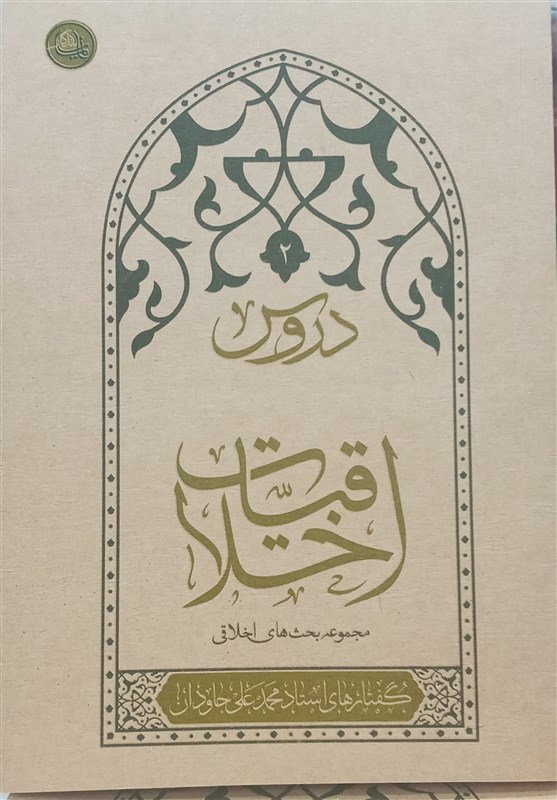 ۲
دروس
اخلاقیات
مجموعه بحث‌های اخلاقی
گفتارهای استاد محمد علی جاودان